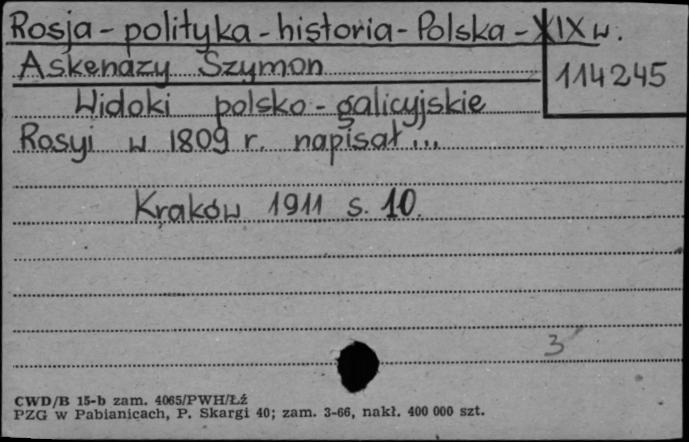 Rosja - polityka - historia - Polska - XIX w.
Askenazy Szymon
114245
Widoki polsko - galicyjskie
Rosyi w 1809 r. napisał...
Kraków 1911 s. 10.
3
CWD/B 15-b zam. 4065/PWH/Łź
PZG w Pabianicach, P. Skargi 40; zam. 3-66, nakł. 400 000 szt.